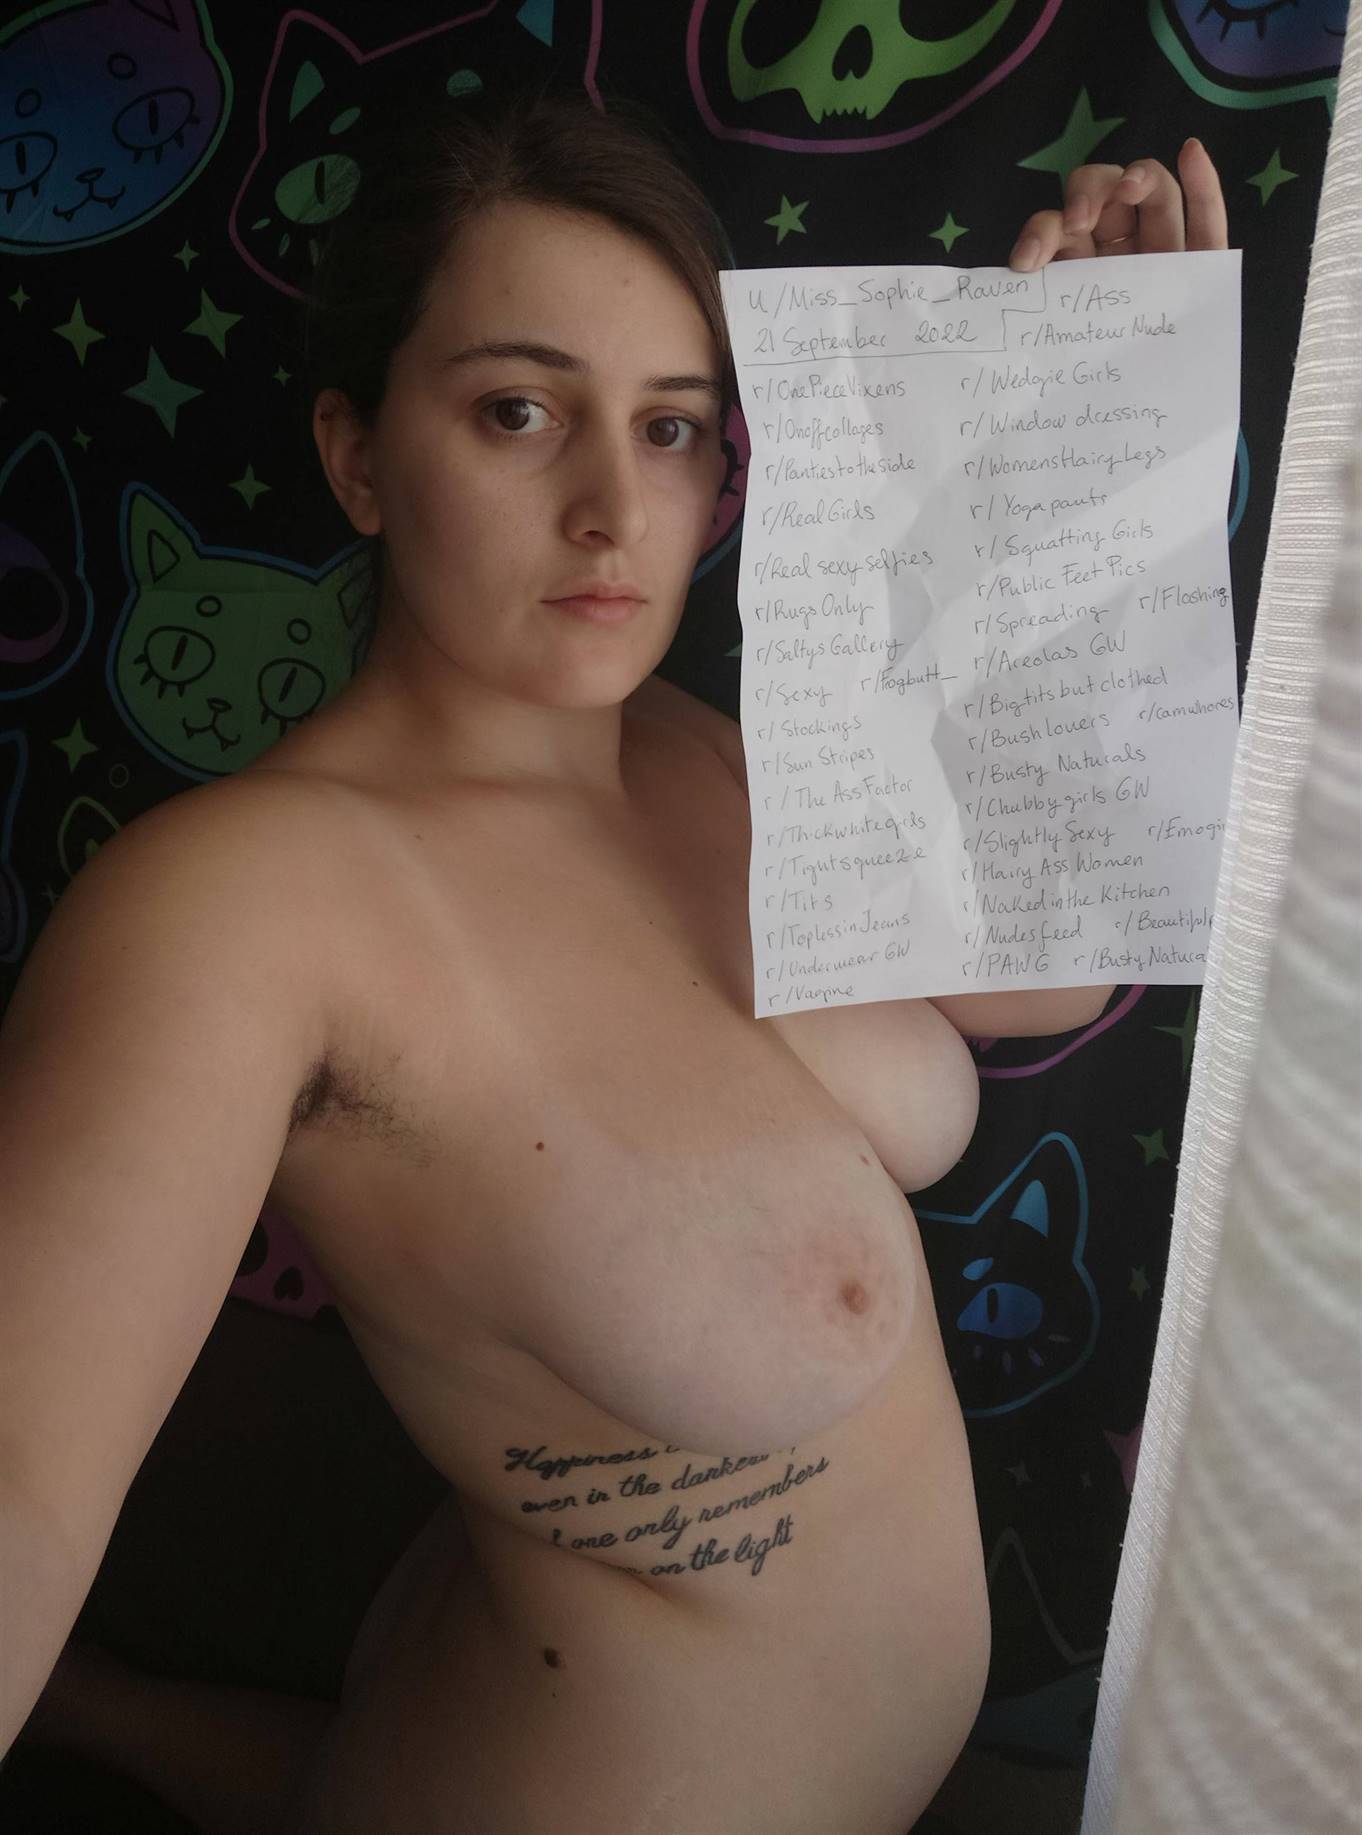 u/Miss_Sophie_Raven
21 September 2022
r/Ass
r/Amateur Nude
r/OnePieceVixens
r/Onoffcollages
r/Pantiestotheside
r/RealGirls
r/Real sexy selfies
r/Rugs Only
r/Saltys Gallery
r/Sexy r/Frogbutt_
r/Stockings
r/Sun Stripes
r/The Ass Factor
r/Thickwhitegirls
r/Tightsqueeze
r/Tits
r/ToplessinJeans
r/Underwear GW
r/Vagine
r/Wedgie Girls
r/Window dressing
r/WomensHairyLegs
r/Yogapants
r/Squatting Girls
r/Public Feet Pics
r/Spreading r/Flashing
r/Areolas GW
r/Bigtits but clothed
r/Bush lovers r/camwhores
r/Busty Naturals
r/Chubby girls GW
r/Slightly Sexy r/Emogi
r/Hairy Ass Women
r/Naked in the Kitchen
r/Nudes feed r/Beautiful
r/PAWG r/Busty Natura
Happiness
even in the darkest
one only remembers
on the light